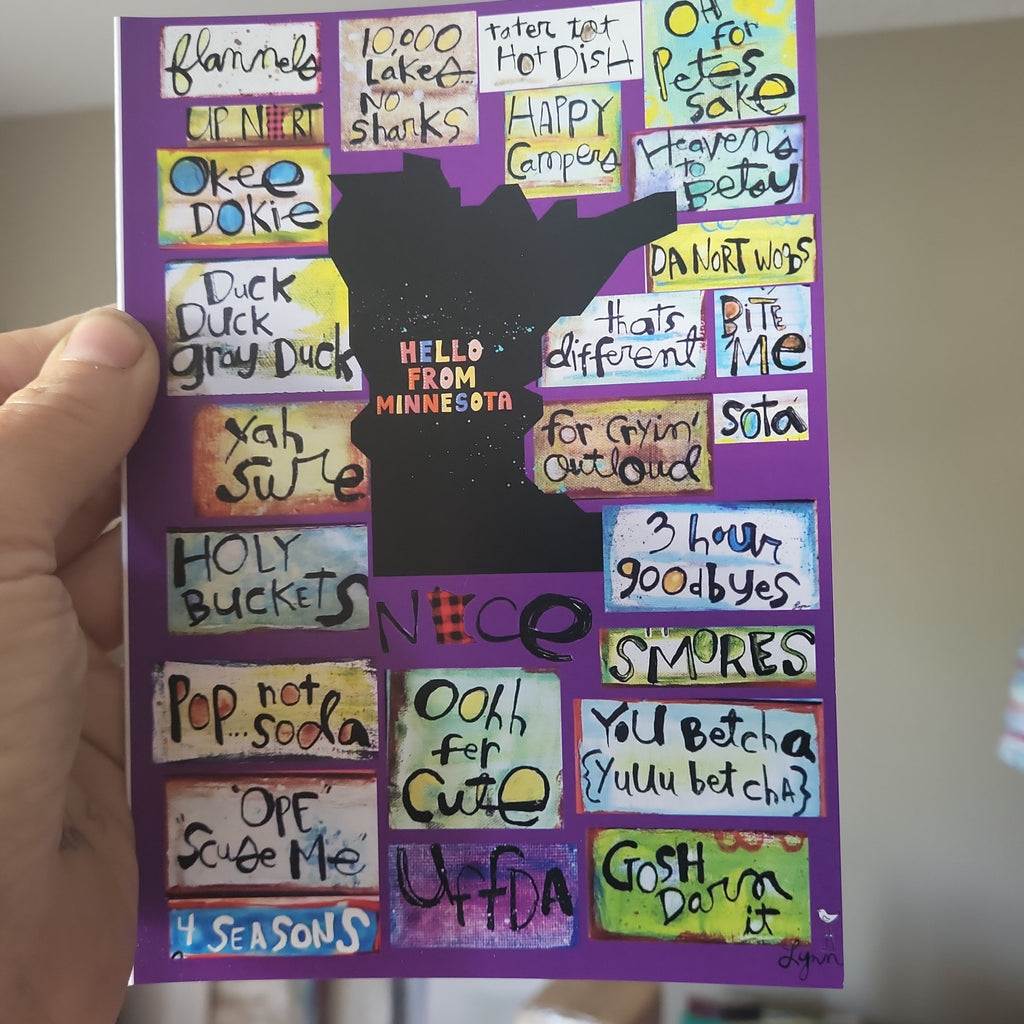 flannels
UP NORT
Okee
DOKIE
Duck
Duck
gray Duck
Yah
sure
HOLY
BUCKETS
Pop... not
soda
"OPE"
"Scuse Me"
4 SEASONS
10,000
Lakes...
NO
sharks
tater tot
HOT DISH
HAPPY
Campers
OH
for
Petes
sake
Heavens
to
Betsy
DA NORT WOODS
thats
different
BiTE
Me
sota
for cryin'
outloud
HELLO
FROM
MINNESOTA
3 hour
goodbyes
NICE
S'MORES
Oohh
fer
Cute
YOU Betcha
{YuUu betchA}
UffDA
GOSH
Darn
it
Lynn